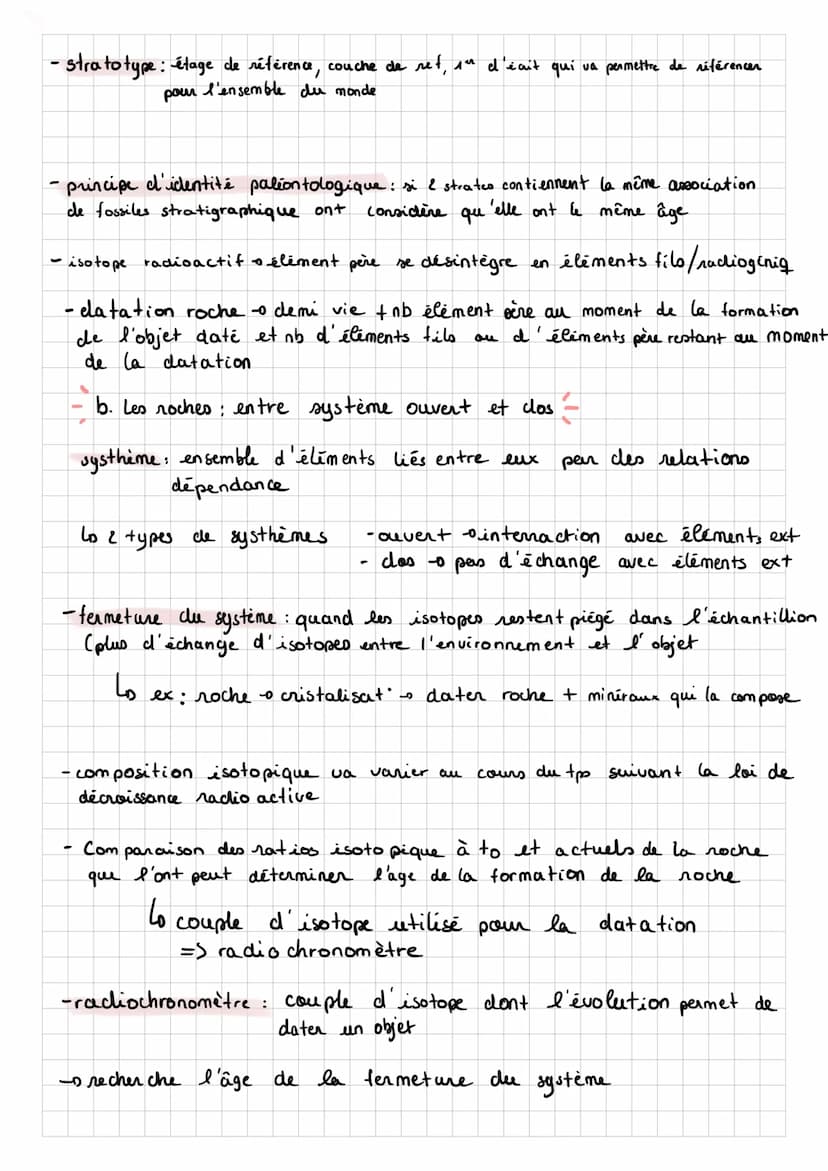 - stratotype : étage de référence, couche de ref, 1er d'écrit qui va permettre de référencer
pour l'ensemble du monde
- principe d'identité paléontologique : si 2 strates contiennent la même association
de fossiles stratigraphique ont considère qu'elle ont le même âge
- isotope radioactif → élément père se désintègre en éléments fils/radiogéniq
- datation roche → demi vie + nb élément père au moment de la formation
de l'objet daté et nb d'éléments fils ou d'éléments père restant au moment
de la datation
b. Les roches : entre système ouvert et clos
systhème : ensemble d'éléments liés entre eux par des relations
dépendance
↳ 2 types de systhèmes - ouvert → internaction avec éléments ext
- clos → pas d'échange avec éléments ext
- fermeture du système : quand les isotopes restent piégé dans l'échantillion
(plus d'échange d'isotopes entre l'environnement et l'objet
↳ ex : roche → cristalisat° → dater roche + minéraux qui la compose
- composition isotopique va varier au cours du tps suivant la loi de
décroissance radio active
- Comparaison des ratios isotopique à t0 et actuels de la roche
que l'ont peut déterminer l'age de la formation de la roche
↳ couple d'isotope utilisé pour la datation
=> radio chronomètre
- radiochronomètre : couple d'isotope dont l'évolution permet de
dater un objet
→ recherche l'âge de la fermeture du système